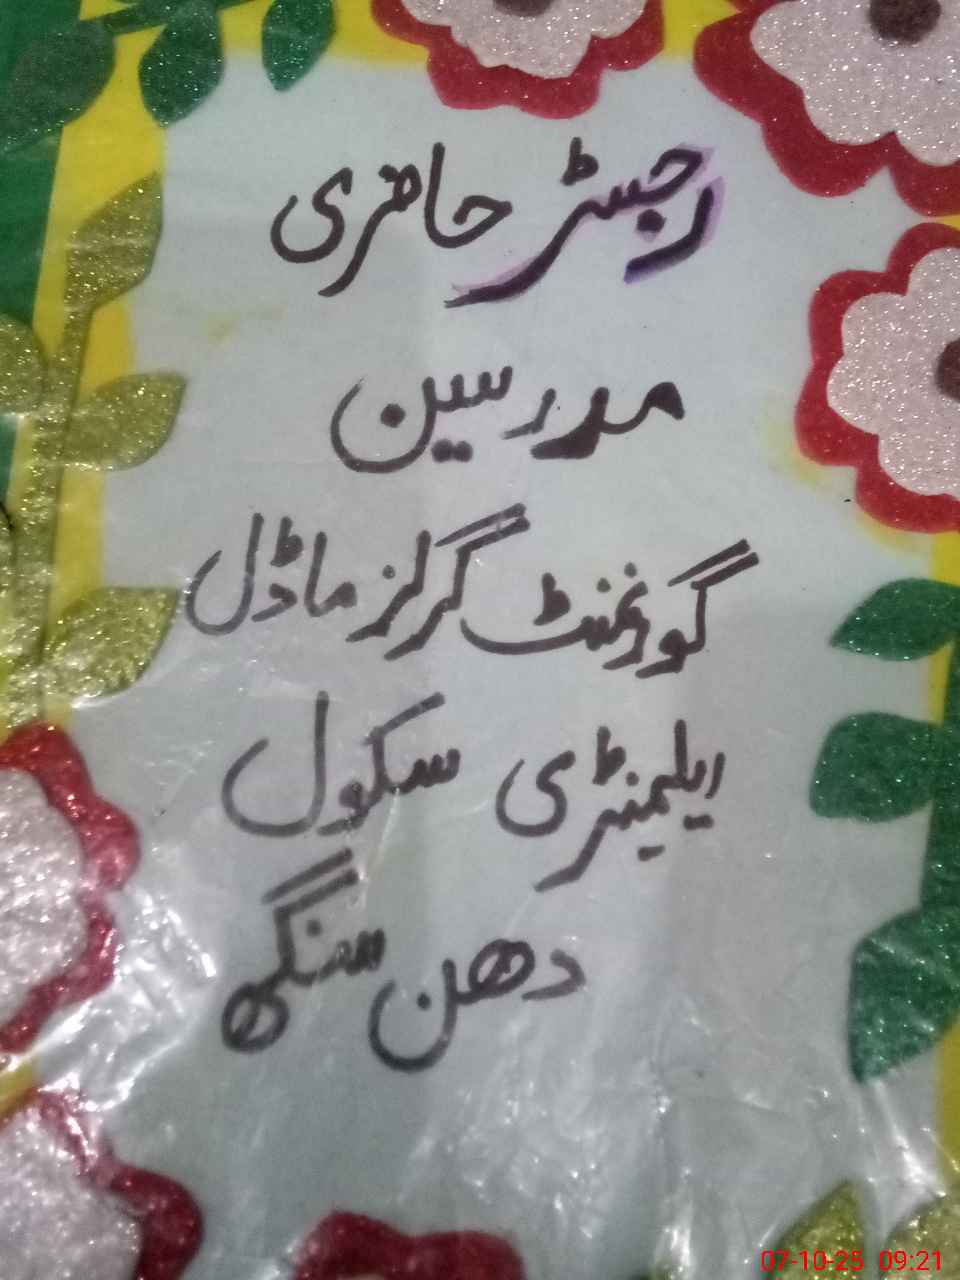 رجسٹر حاضری
مدرسین
گورنمنٹ گرلز ماڈل
ایلیمنٹری سکول
دھن سنگھ
07-10-25 09:21